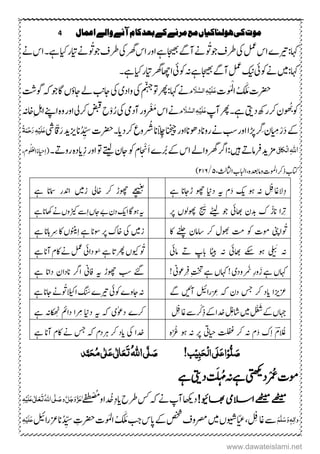 موت کی ہولناکیاں مع مرنے کے بعد کام آنے والے اعمال 4
کہا: تیرے اس عمل کی طرف جو تُونے آگے بھیجا ہے اور اس گھر کی طرف جو تُونے تیار کیا ہے۔ اس نے
کہا: میں نے کوئی نیک عمل آگے بھیجا ہے نہ کوئی اچھا گھر تیار کیا ہے۔
حضرت
نے کہا: پھر تو جہنم کی وادی
کی طرف جاؤں گا جو گوشت
کو بھون کر رکھ دیتی ہے۔ پھر آپ
نے اس مغرور آدمی کی رُوح قبض کرلی اور وہ اپنے اہل خانہ
کے درمیان گر پڑا اور سب نے رونا دھونا اور چیخنا چلانا شروع کردیا۔ حضرتِ سیّدُنا یزید رقاشی
فرماتے ہیں: اگر گھر والے اس کے بُرے انجام کو جان لیتے تو اور زیادہ روتے۔
دِلا غافل نہ ہو یک دم یہ دنیا چھوڑ جانا ہے بغیچے چھوڑ کر خالی زمیں اندر سمانا ہے
ترا نازک بدن بھائی جو لیٹے سیج پھولوں پر یہ ہوگا ایک دن بے جاں اسے کیڑوں نے کھانا ہے
تو اپنی موت کو مت بھول کر سامان چلنے کا زمیں کی خاک پر سونا ہے اینٹوں کا سرہانا ہے
نہ بیلی ہو سکے بھائی نہ بیٹا باپ تے مائی تو کیوں پھرتا ہے سودائی عمل نے کام آنا ہے
کہاں ہے زورِ نمرودی! کہاں ہے تختِ فرعونی! گئے سب چھوڑ یہ فانی اگر نادان دانا ہے
عزیزا یاد کر جس دن کہ عزرائیل آئیں گے نہ جاوے کوئی تیرے سنگ اکیلا تُونے جانا ہے
جہاں کے شغل میں شاغل خدا کے ذِکر سے غافل کرے دعویٰ کہ یہ دنیا مِرا دائم ٹھکانا ہے
غلام اک دم نہ کر غفلت حیاتی پر نہ ہو غرّہ خدا کی یاد کر ہر دم کہ جس نے کام آنا ہے
صَلُّوا عَلَى الْحَبِيْب! صَلَّى اللهُ تَعَالٰى عَلٰى مُحَمَّد
موت عُذر دیکھتی ہے نہ مُہلت دیتی ہے
میٹھے میٹھے اسلامی بھائیو! دیکھا آپ نے کہ کس طرح
سے غافل، عیش و عشرت میں مصروف شخص کے پاس جب
حضرتِ سیّدُنا عزرائیل